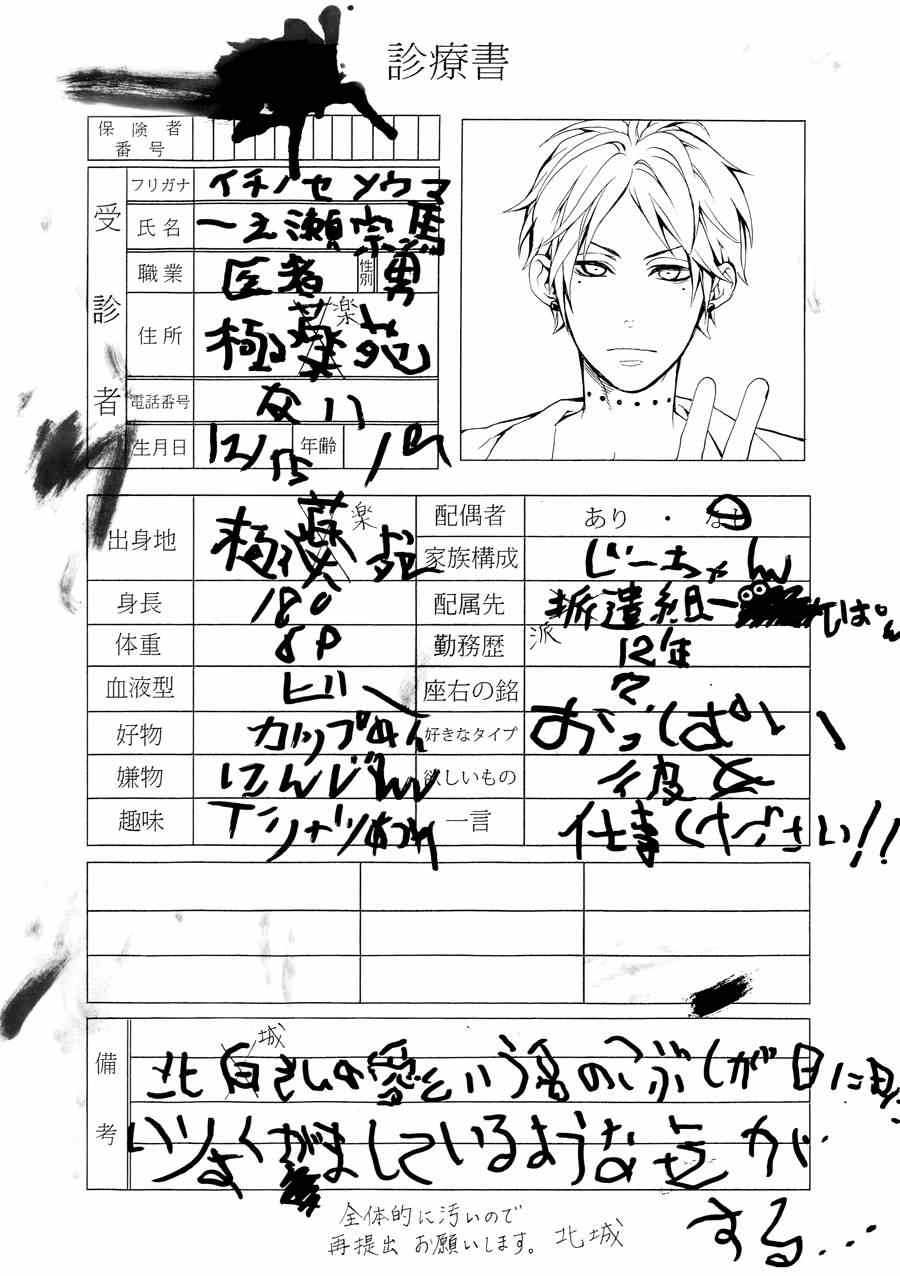 診療書
保険者
番号
受診者
フリガナ イチノセ ソウマ
氏名 一之瀬宗馬
職業 医者 性別 男
住所 極薬苑 楽
電話番号 ない
生月日 12/15 年齢 19
出身地 極 苑 楽
配偶者 あり ・ なし
家族構成 じーちゃん
身長 180
配属先 派遣組一 てぱん
派
体重 8P
勤務歴 12年
血液型 ビー
座右の銘 ?
好物 カップめん
好きなタイプ おっぱい
嫌物 にんじん
欲しいもの 彼女
趣味 Tシャツあつめ
一言 仕事ください!!
備考
城
北白さんの愛という名のこぶしが目に見
いりょくがましているような気が
する...
全体的に汚いので
再提出 お願いします。 北城